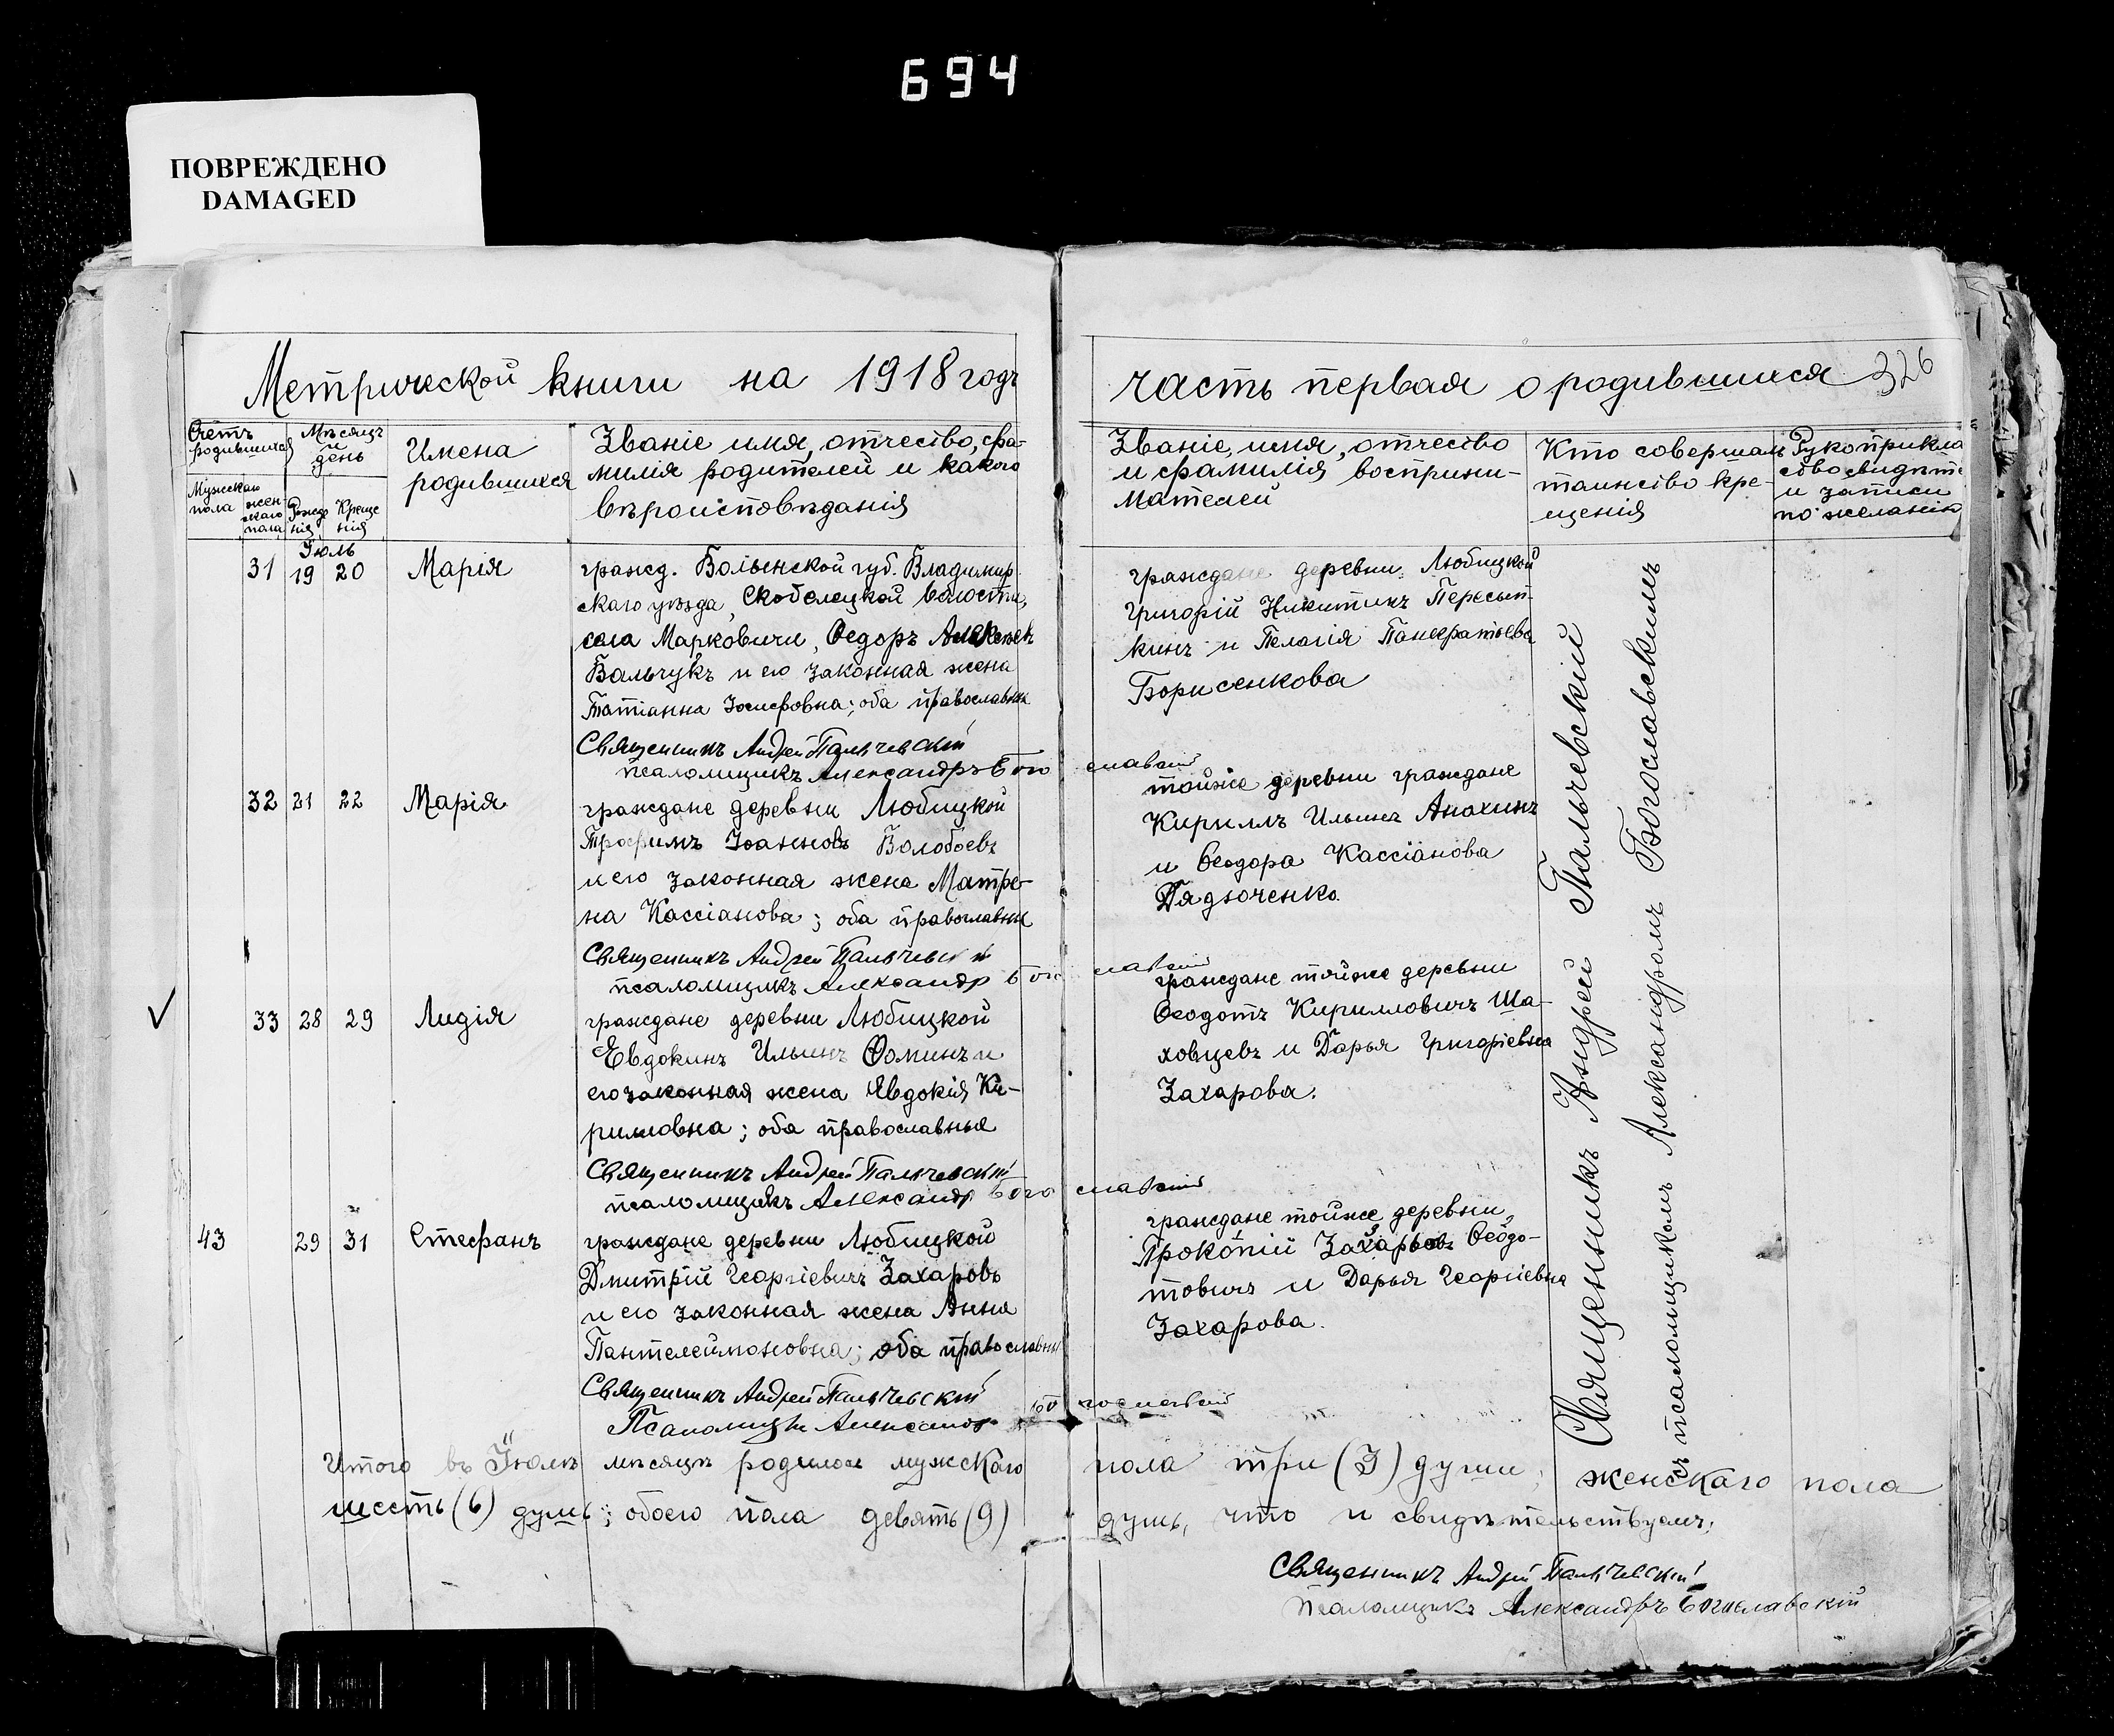 694
ПОВРЕЖДЕНО
DAMAGED
Метрической книги на 1918 годъ
часть первая о родившихся 326
Счетъ родившихся
Мѣсяцъ и день
Имена родившихся
Званіе имя, отчество, фа-
милія родителей и какого
вѣроисповѣданія
Званіе, имя, отчество
и фамилія восприни-
мателей
Кто совершалъ
таинство кре-
щенія
Рукоприкла
ство свидѣте
и записи
по желанію
Мужскаго пола
женскаго пола
Рожде нія
Креще нія
Іюль
31 19 20 Марія
гражд. Волынской губ. Владимир
скаго уѣзда, Скобелецкой волости,
села Марковичи, Ѳедоръ
Вальчукъ и его законная жена
Татіанна Іосифовна; оба православны
Священникъ Андрей Пальчевскій
псаломщикъ Александръ Богославскій
граждане деревни Любицкой
Григорій Никитинъ Пересып-
кинъ и Пелагія Панкратьева
Борисенкова
32 21 22 Марія
граждане деревни Любицкой
Трофимъ Іоанновъ Волобоевъ
и его законная жена Матре-
на Кассіанова; оба православные
Священникъ Андрей Пальчевскій
псаломщикъ Александр Богославскій
тойже деревни граждане
Кириллъ Ильинъ Анохинъ
и Ѳеодора Кассіанова
Дядюченко.
33 28 29 Лидія
граждане деревни Любицкой
Евдокинъ Ильинъ Ѳоминъ и
его законная жена Евдокія Ки-
рилловна; оба православные
Священникъ Андрей Пальчевскій
псаломщикъ Александр Богославскій
граждане тойже деревни
Ѳеодотъ Кирилловичъ Ша-
ховцевъ и Дарья Григоріевна
Захарова.
43 29 31 Стефанъ
граждане деревни Любицкой
Дмитрій Георгіевичъ Захаровъ
и его законная жена Анна
Пантелеймоновна; оба православны
Священникъ Андрей Пальчевскій
Псаломщикъ Александр Богославскій
граждане тойже деревни
Прокопій Захаровъ Ѳеодо-
товичъ и Дарья Георгіевна
Захарова.
Священникъ Андрей Пальчевскій
съ псаломщикомъ Александромъ Богославскимъ
Итого въ Іюлѣ мѣсяцѣ родилось мужскаго пола три (3) души, женскаго пола
шесть (6) душъ; обоего пола девять (9) душъ, что и свидѣтельствуемъ;
Священникъ Андрей Пальчевскій
Псаломщикъ Александръ Богославскій